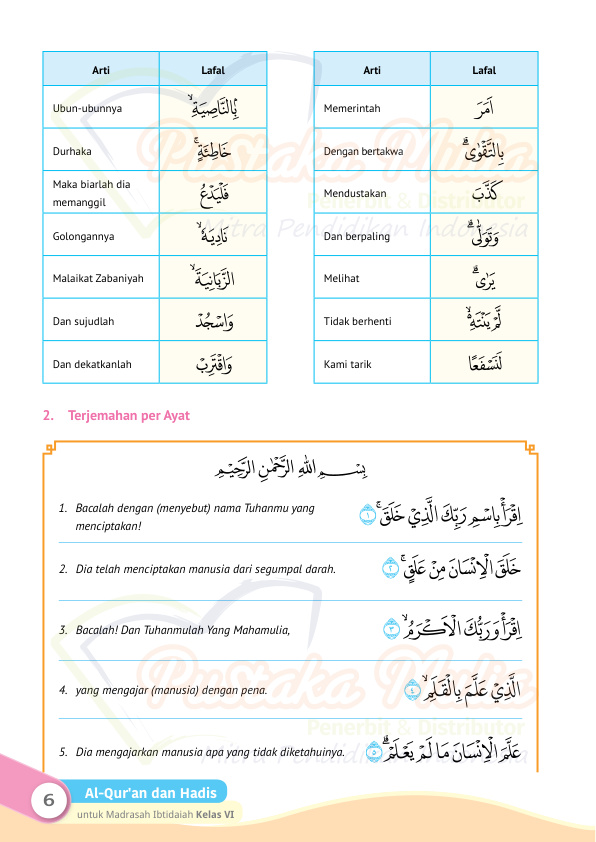 Arti Lafal
Ubun-ubunnya بِالنَّاصِيَةِۙ
Durhaka خَاطِئَةٍۚ
Maka biarlah dia
memanggil فَلْيَدْعُ
Golongannya نَادِيَهٗۙ
Malaikat Zabaniyah الزَّبَانِيَةَۙ
Dan sujudlah وَاسْجُدْ
Dan dekatkanlah وَاقْتَرِبْ
Arti Lafal
Memerintah اَمَرَ
Dengan bertakwa بِالتَّقْوٰىۗ
Mendustakan كَذَّبَ
Dan berpaling وَتَوَلّٰىۗ
Melihat يَرٰىۗ
Tidak berhenti لَّمْ يَنْتَهِۙ
Kami tarik لَنَسْفَعًا
2. Terjemahan per Ayat
بِسْمِ اللّٰهِ الرَّحْمٰنِ الرَّحِيْمِ
1. Bacalah dengan (menyebut) nama Tuhanmu yang
menciptakan!
اِقْرَأْ بِاسْمِ رَبِّكَ الَّذِيْ خَلَقَۚ ١
2. Dia telah menciptakan manusia dari segumpal darah.
خَلَقَ الْاِنْسَانَ مِنْ عَلَقٍۚ ٢
3. Bacalah! Dan Tuhanmulah Yang Mahamulia,
اِقْرَأْ وَرَبُّكَ الْاَكْرَمُۙ ٣
4. yang mengajar (manusia) dengan pena.
الَّذِيْ عَلَّمَ بِالْقَلَمِۙ ٤
5. Dia mengajarkan manusia apa yang tidak diketahuinya.
عَلَّمَ الْاِنْسَانَ مَا لَمْ يَعْلَمْۗ ٥
Pustaka Mulia
Penerbit & Distributor
Mitra Pendidikan Indonesia
6
Al-Qur'an dan Hadis
untuk Madrasah Ibtidaiah Kelas VI